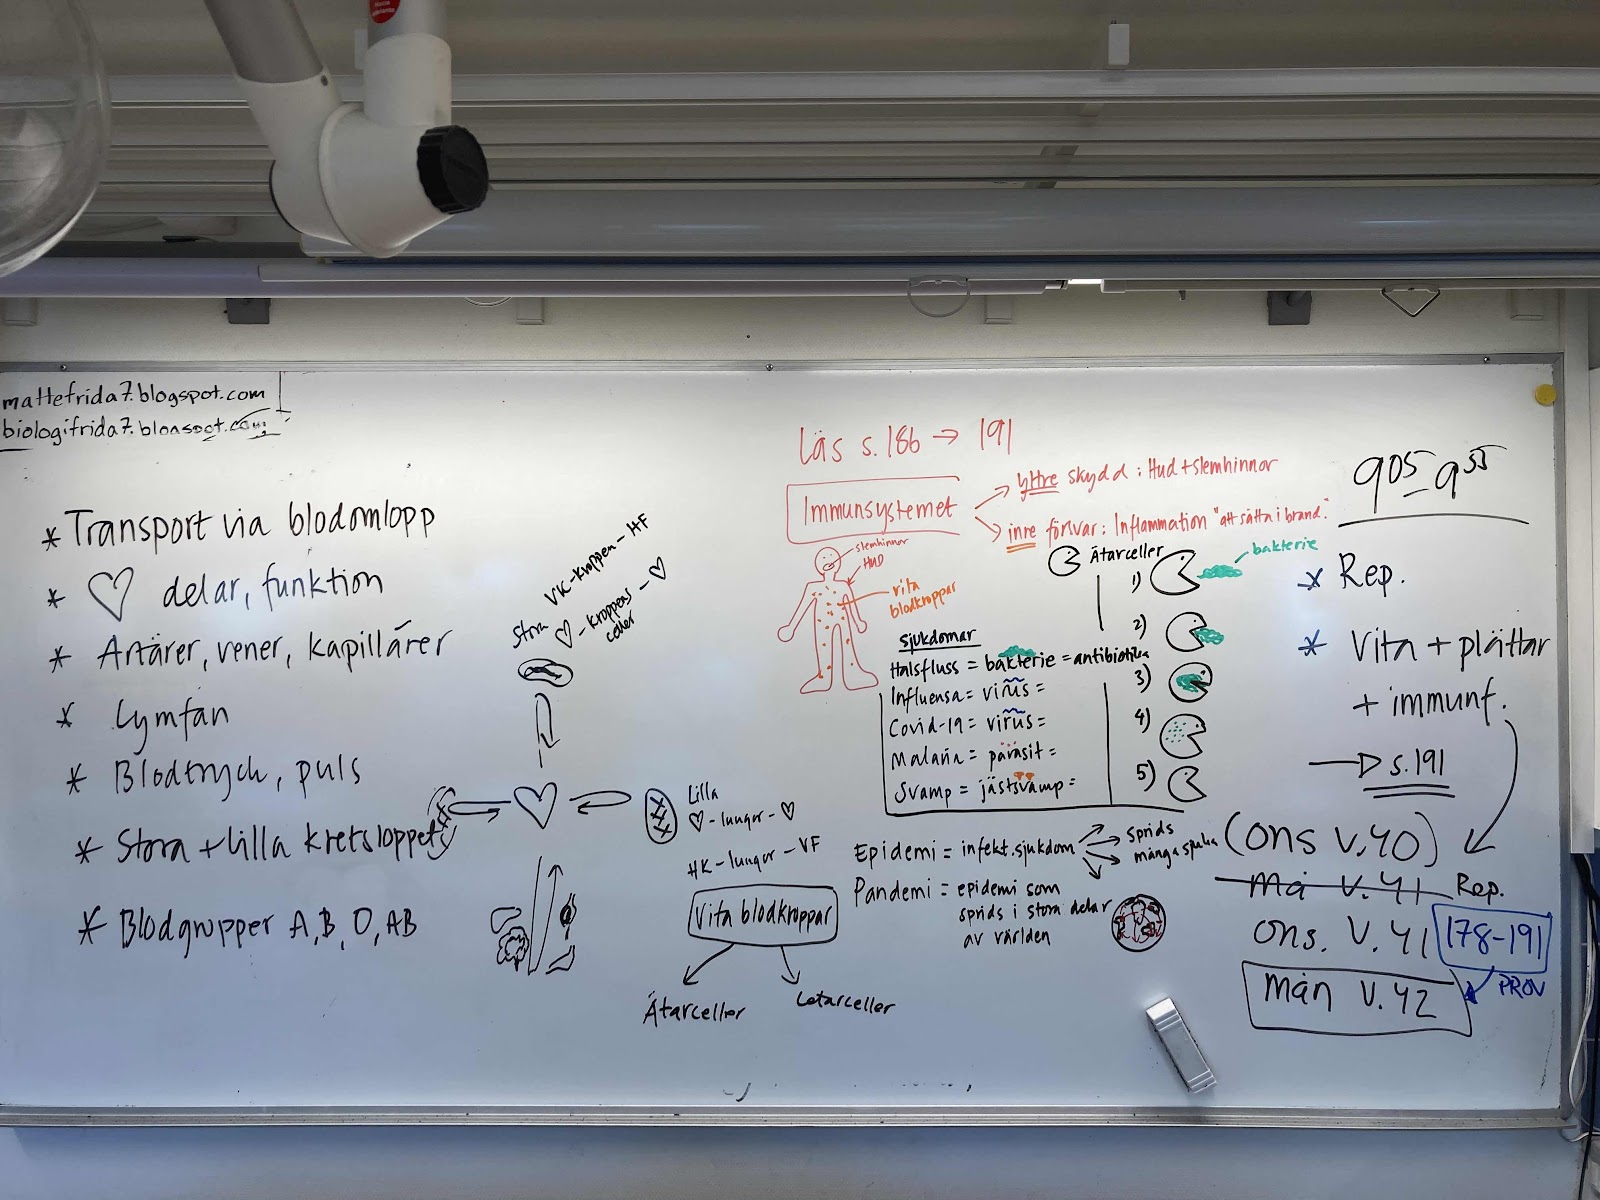 mattefrida7.blogspot.com
biologifrida7.blogspot.com
* Transport via blodomlopp
* ♡ delar, funktion
* Artärer, vener, kapillärer
* Lymfan
* Blodtryck, puls
* Stora + Lilla kretsloppet
* Blodgrupper A, B, O, AB
Stora VK-kroppen-HF
♡-kroppens celler-♡
Lilla
♡-lungor-♡
HK-lungor-VF
Vita blodkroppar
Ätarceller
Letarceller
läs s.186 → 191
Immunsystemet
yttre skydd: Hud + slemhinnor
inre försvar: Inflammation "att sätta i brand".
slemhinnor
HUD
vita
blodkroppar
Ätarceller
1)
bakterie
2)
3)
4)
5)
sjukdomar
Halsfluss = bakterie = antibiotika
Influensa = virus =
Covid-19 = virus =
Malaria = parasit =
Svamp = jästsvamp =
Epidemi = infekt.sjukdom
sprids
många sjuka
Pandemi = epidemi som
sprids i stora delar
av världen
9 05 - 9 55
* Rep.
* Vita + plättar
+ immunf.
→ s.191
(ons V.40)
må V.41
Rep.
ons. V.41
178-191
PROV
mån V.42